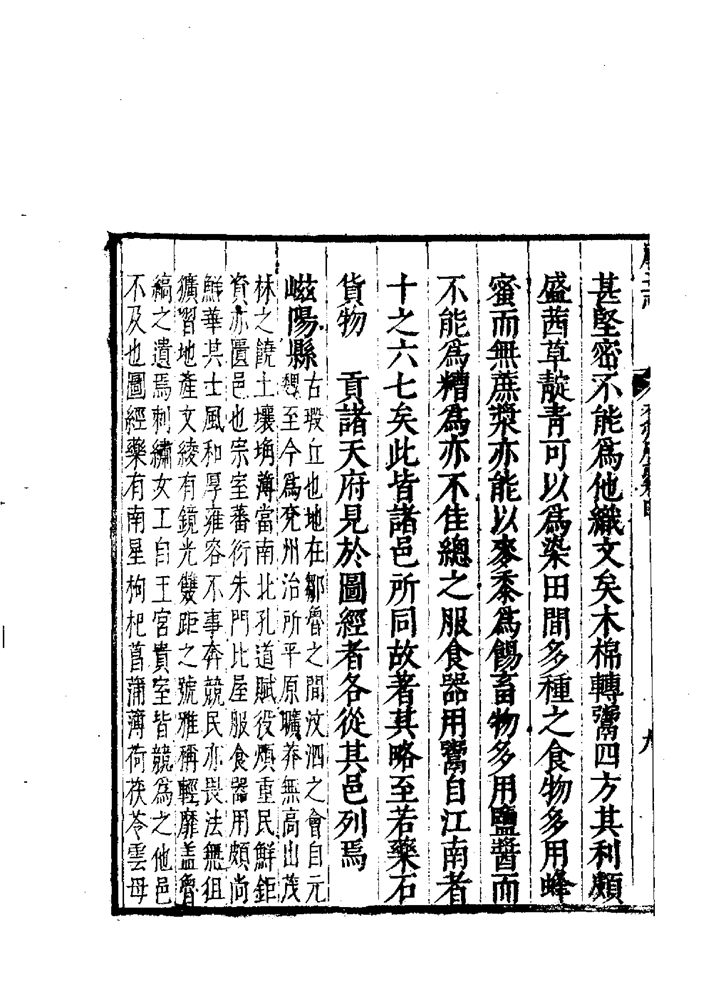 甚堅密不能爲他織文矣木棉轉鬻四方其利頗
盛茜草靛青可以爲染田間多種之食物多用蜂
蜜而無蔗漿亦能以麥黍爲餳畜物多用鹽醬而
不能爲糟爲亦不佳總之服食器用鬻自江南者
十之六七矣此皆諸邑所同故著其略至若藥石
貨物 貢諸天府見於圖經者各從其邑列焉
嵫陽縣
古瑕丘也地在鄒魯之間汶泗之會自元
魏至今爲兗州治所平原曠莽無高山茂
林之饒土壤塉薄當南北孔道賦役煩重民鮮鉅
資亦匱邑也宗室蕃衍朱門比屋服食器用頗尚
鮮華其士風和厚雍容不事奔競民亦畏法無狙
獷習地產文綾有鏡光雙距之號雅稱輕靡盖魯
縞之遺焉刺繡女工自王宮貴室皆競爲之他邑
不及也圖經藥有南星枸杞菖蒲薄荷茯苓雲母